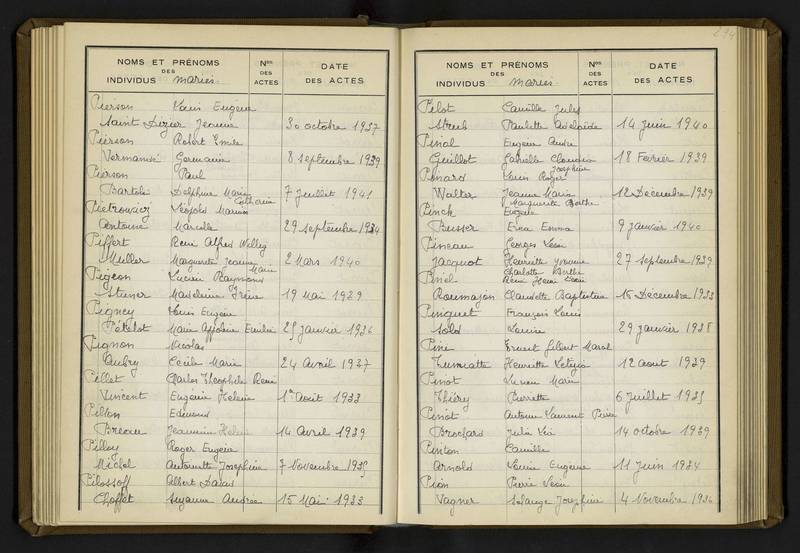 NOMS ET PRÉNOMS
DES
INDIVIDUS mariés
Nos
DES
ACTES
DATE
DES ACTES
Pierson Louis Eugène
Saint Dizier Jeanne 30 octobre 1937
Pierson Robert Emile
Germaine 8 septembre 1939
Pierson Paul
Bartole Delphine Marie Catherine 7 juillet 1941
Pietrowicz Léopold Marian
Antoine Marcelle 29 septembre 1934
Piffert René Alfred Willy
Muller Marguerite Jeanne Marie 2 Mars 1940
Pigeon Lucien Raymond
Madeleine Irène 19 Mai 1939
Pigney Louis Eugène
Pételot Marie Appoline Emilie 25 janvier 1936
Pignon Nicolas
Aubry Cécile Marie 24 avril 1937
Pillet Charles Théophile René
Vincent Eugénie Hélène 1er Août 1933
Pillon Edmond
Breau Jeannine Hélène 14 Avril 1939
Pilloy Roger Eugène
Michel Antoinette Joséphine 7 Novembre 1935
Pilossoff Albert David
Choffet Suzanne Andrée 15 Mai 1933
294
NOMS ET PRÉNOMS
DES
INDIVIDUS mariés
Nos
DES
ACTES
DATE
DES ACTES
Pilot Camille Jules
Streub Paulette Adelaïde 14 juin 1940
Pinal Eugène André
Guillot Gabrielle Claudia Joséphine 18 Février 1939
Pinard Louis Roger
Walter Jeanne Marie Marguerite Berthe 12 Décembre 1939
Pinck Eugène
Busser Erica Emma 9 janvier 1940
Pineau Georges Léon
Jacquot Henriette Yvonne Charlotte Berthe 27 septembre 1939
Pinel René Henri Léon
Roumajon Claudette Baptistine 16 Décembre 1933
Pinguet François Louis
Sold Louise 29 janvier 1938
Pini Ernest Gilbert
Henriette Letizia 12 août 1939
Pinot Lucien Marie
Thiéry Pierrette 6 juillet 1935
Pinot Antoine Laurent Pierre
Brochard Julia Léa 14 octobre 1939
Pinton Camille
Arnold Louise Eugénie 11 juin 1934
Pion Pierre Léon
Vagner Solange Joséphine 4 Novembre 1936